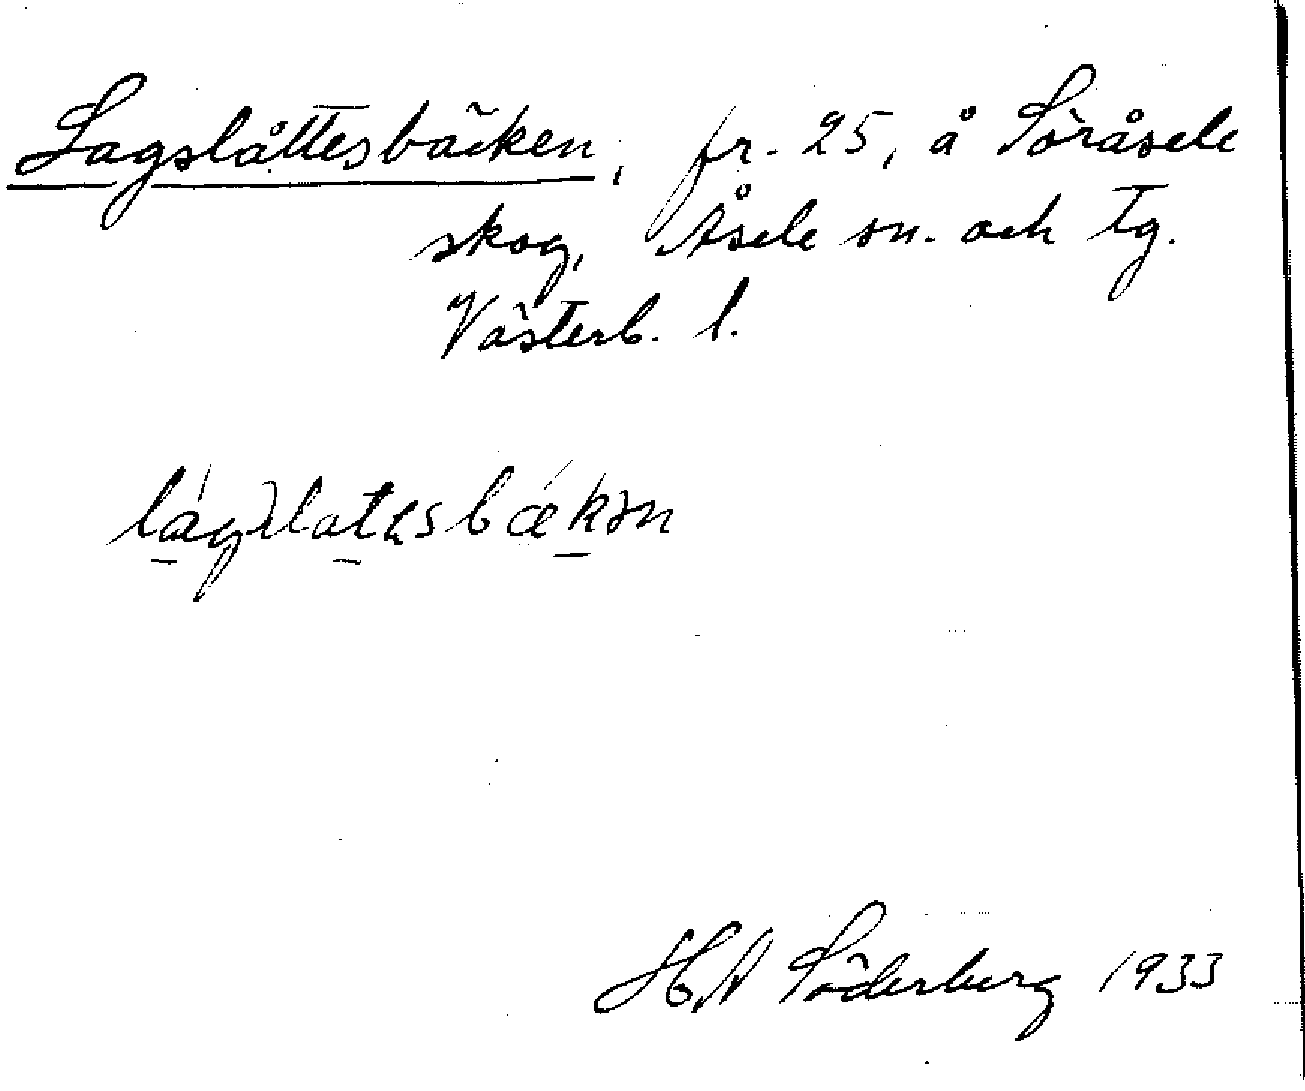 Lagslåttesbäcken, fr. 25, å Söråsele
skog, Åsele sn. och tg.
Västerb. l.
H.A Söderberg 1933